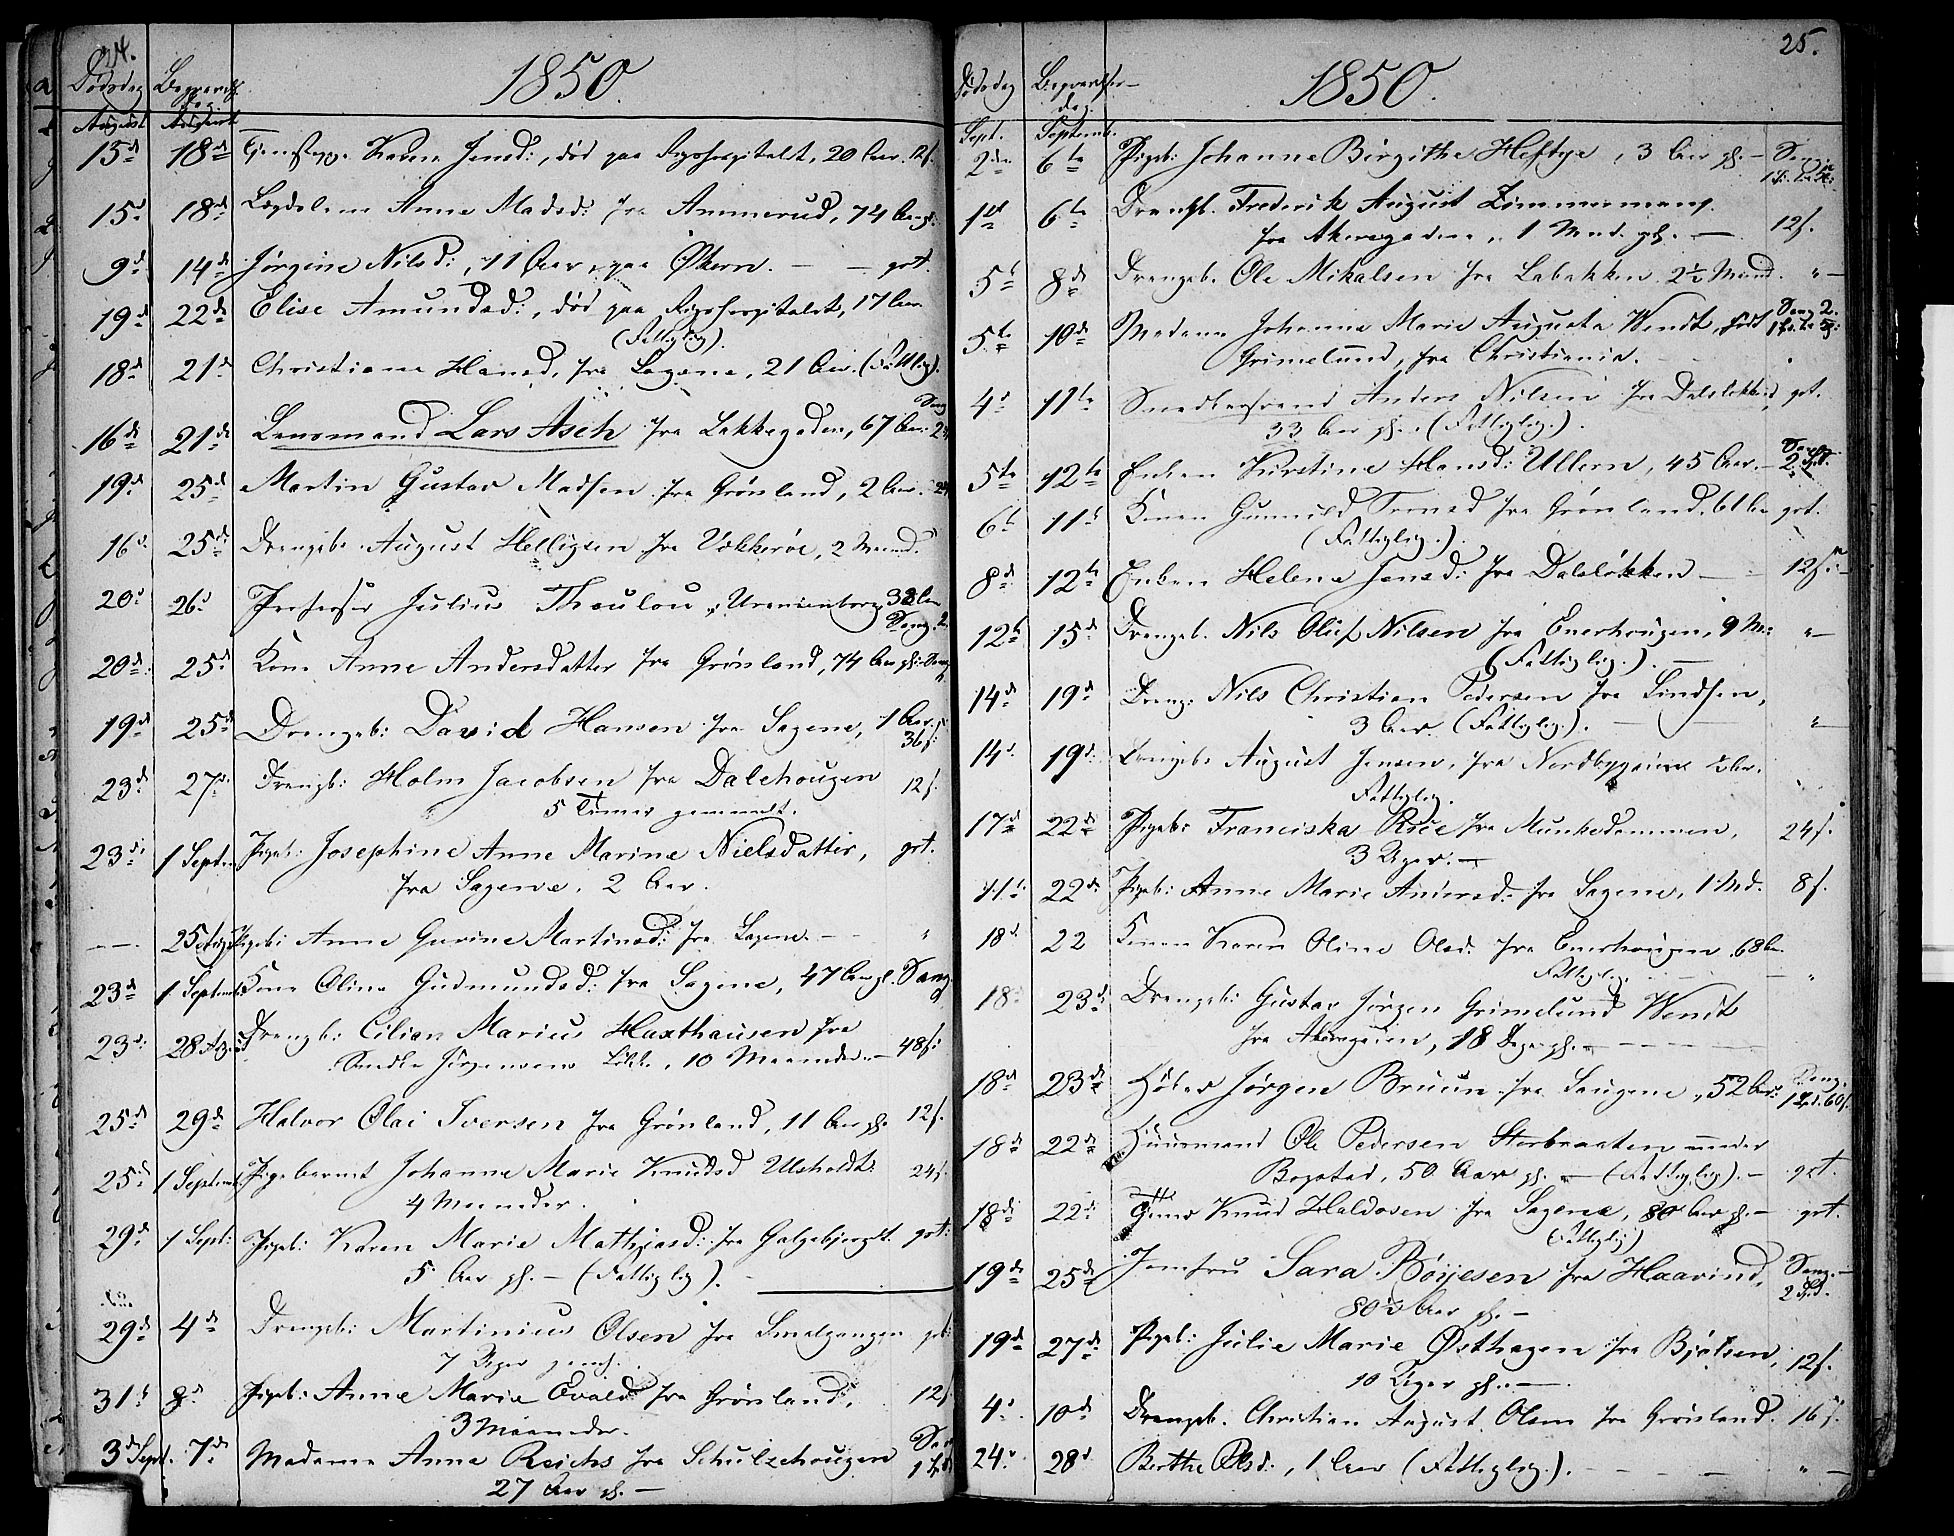 24.
Dødsdag Begravelsesdag 1850.
August August
15de 18de Karen Jensd:, død paa Rigshospitalet, 20 Aar. 12s.
15d 18de Anne Madsd: fra Ammerud, 74 Aar
9d 14de Jørgine Nilsd:, 11 Aar, paa Økern. — — grt.
19de 22de Elise Amundsd:, død paa Rigshospitalet, 17 Aar
(Fattiglig).
18de 21de Christiane Hansd, fra Sagene, 21 Aar. (Fattlig).
16de 21de Lensmand Lars Asch fra Lakkegaden, 67 Aar
19de 25de Martin Gustav Madsen fra Grønland, 2 Aar.
16d 25de Drengeb: August Helligsen fra Vækkerøe, 2 Maand.
20d 26d Professor Julius Thaulow, Uranienborg, 38 Aar
Sang 2
20de 25d Kone Anne Andersdatter fra Grønland, 74 Aar gl: Sang
19de 25de Drengeb: David Hansen fra Sagene, 1 Aar.
36s:
23de 27de Drengb: Holm Jacobsen fra Dalehougen 12s:
5 Timer gammelt.
23de 1 Septem Pigeb: Josephine Anne Marine Nielsdatter, grt.
fra Sagene, 2 Aar.
— 25 August Pigeb: Anne Gurine Martinsd: fra Sagene. — "
23de 1 Septemb Kone Oline Gudmundsd: fra Sagene, 47 Aar gl. Sang
23de 28 August Drengb: Cilian Marius Haxthausen fra
Smedke Jørgensens Løkke, 10 Maaneder. — 48s:
25de 29de Halvor Olai Iversen fra Grønland, 11 Aar gl. 12s.
25de 1 Septemb Pigebarnet Johanne Marie Knudsd Ulsholdt 24s.
4 Maaneder.
29de 1 Sept: Pigeb: Karen Marie Mathiasd: fra Galgebjerget. grt:
5 Aar gl. — (Fattiglig).
29de 4de Drengeb: Martinius Olsen fra Smalgangen grt:
7 Uger gml.
31te 8de Pigeb: Anne Marie Evald fra Grønland, 12s
3 Maaneder.
3de Sept. 7de Madame Anna Reichs fra Schulzehougen
27 Aar gl. —
25.
Dødsdag Begravelses-dag 1850.
Sept. Septemb.
2den 6te Pigeb: Johanne Birgithe Heftye, 3 Aar gl. — Sang
1ste 6te Drengb. Frederik August Zimmermann
fra Akersgaden, 1 Mnd. gl. — 12s.
5te 8de Drengeb. Ole Mikalsen fra Labakken 2½ Maand. " —
5te 10de Madame Johanna Marie Augusta Wendt, født Sang 2.
Grimelund, fra Christiania.
4de 11te Anders Nilsen fra Dalsløkken, grt.
33 Aar gl. (Fattiglig.).
5te 12te Enken Kirstine Hansd: Ullern, 45 Aar. — Sang
6te 11te Konen Gunnild fra Grønland, 61 Aar grt.
(Fattiglig.).
8de 12te Enken Helene Jensd: fra Dalsløkken — 12s.
12te 15de Drengeb. Nils Oluf Nilsen fra Enerhougen, 9 Mr: " —
(Fattiglig.). —
14de 19de Dreng. Nils Christian Pedersen fra Lindsen,
3 Aar. (Fattiglig.). — "
14de 19de Drengeb: August Jensen, fra Nordbygaien 2 Aar.
Fattiglig.
17de 22de Pigeb: Franciska fra Munkedammen, 24s.
3 Uger. —
11te 22de Pigeb: Anne Marie Andersd: fra Sagene, 1 Md. 8s.
18de 22 Konen Karen Oline Olsd. fra Enerhougen 68 Aar
Fattiglig. — — "
18 23de Drengeb: Gustav Jørgen Grimelund Wendt
fra Akersgaden, 18 Dage gl. —
18de 23de Jørgen Bruun fra Saugene, 52 Aar: Sang.
18de 22de Huusmand Ole Pedersen Storbraaten under
Bogstad, 50 Aar gl. — (Fattiglig). — grt.
18de 22de Knud Haldosen fra Sagene, 80 Aar gl. — grt.
(Fattiglig)
19de 25de Jomfru Sara Bøyesen fra Haavind, Sang. —
80½ Aar gl. — 2 Spd.
19de 27de Pigeb: Julie Marie Østhagen fra Bjølsen, 12s.
10 Uger gl. —
4d 10de Drengeb. Christian August Olsen fra Grønland. 16s.
24de 28d Berthe Olsd:, 1 Aar (Fattiglig.). — — — " —